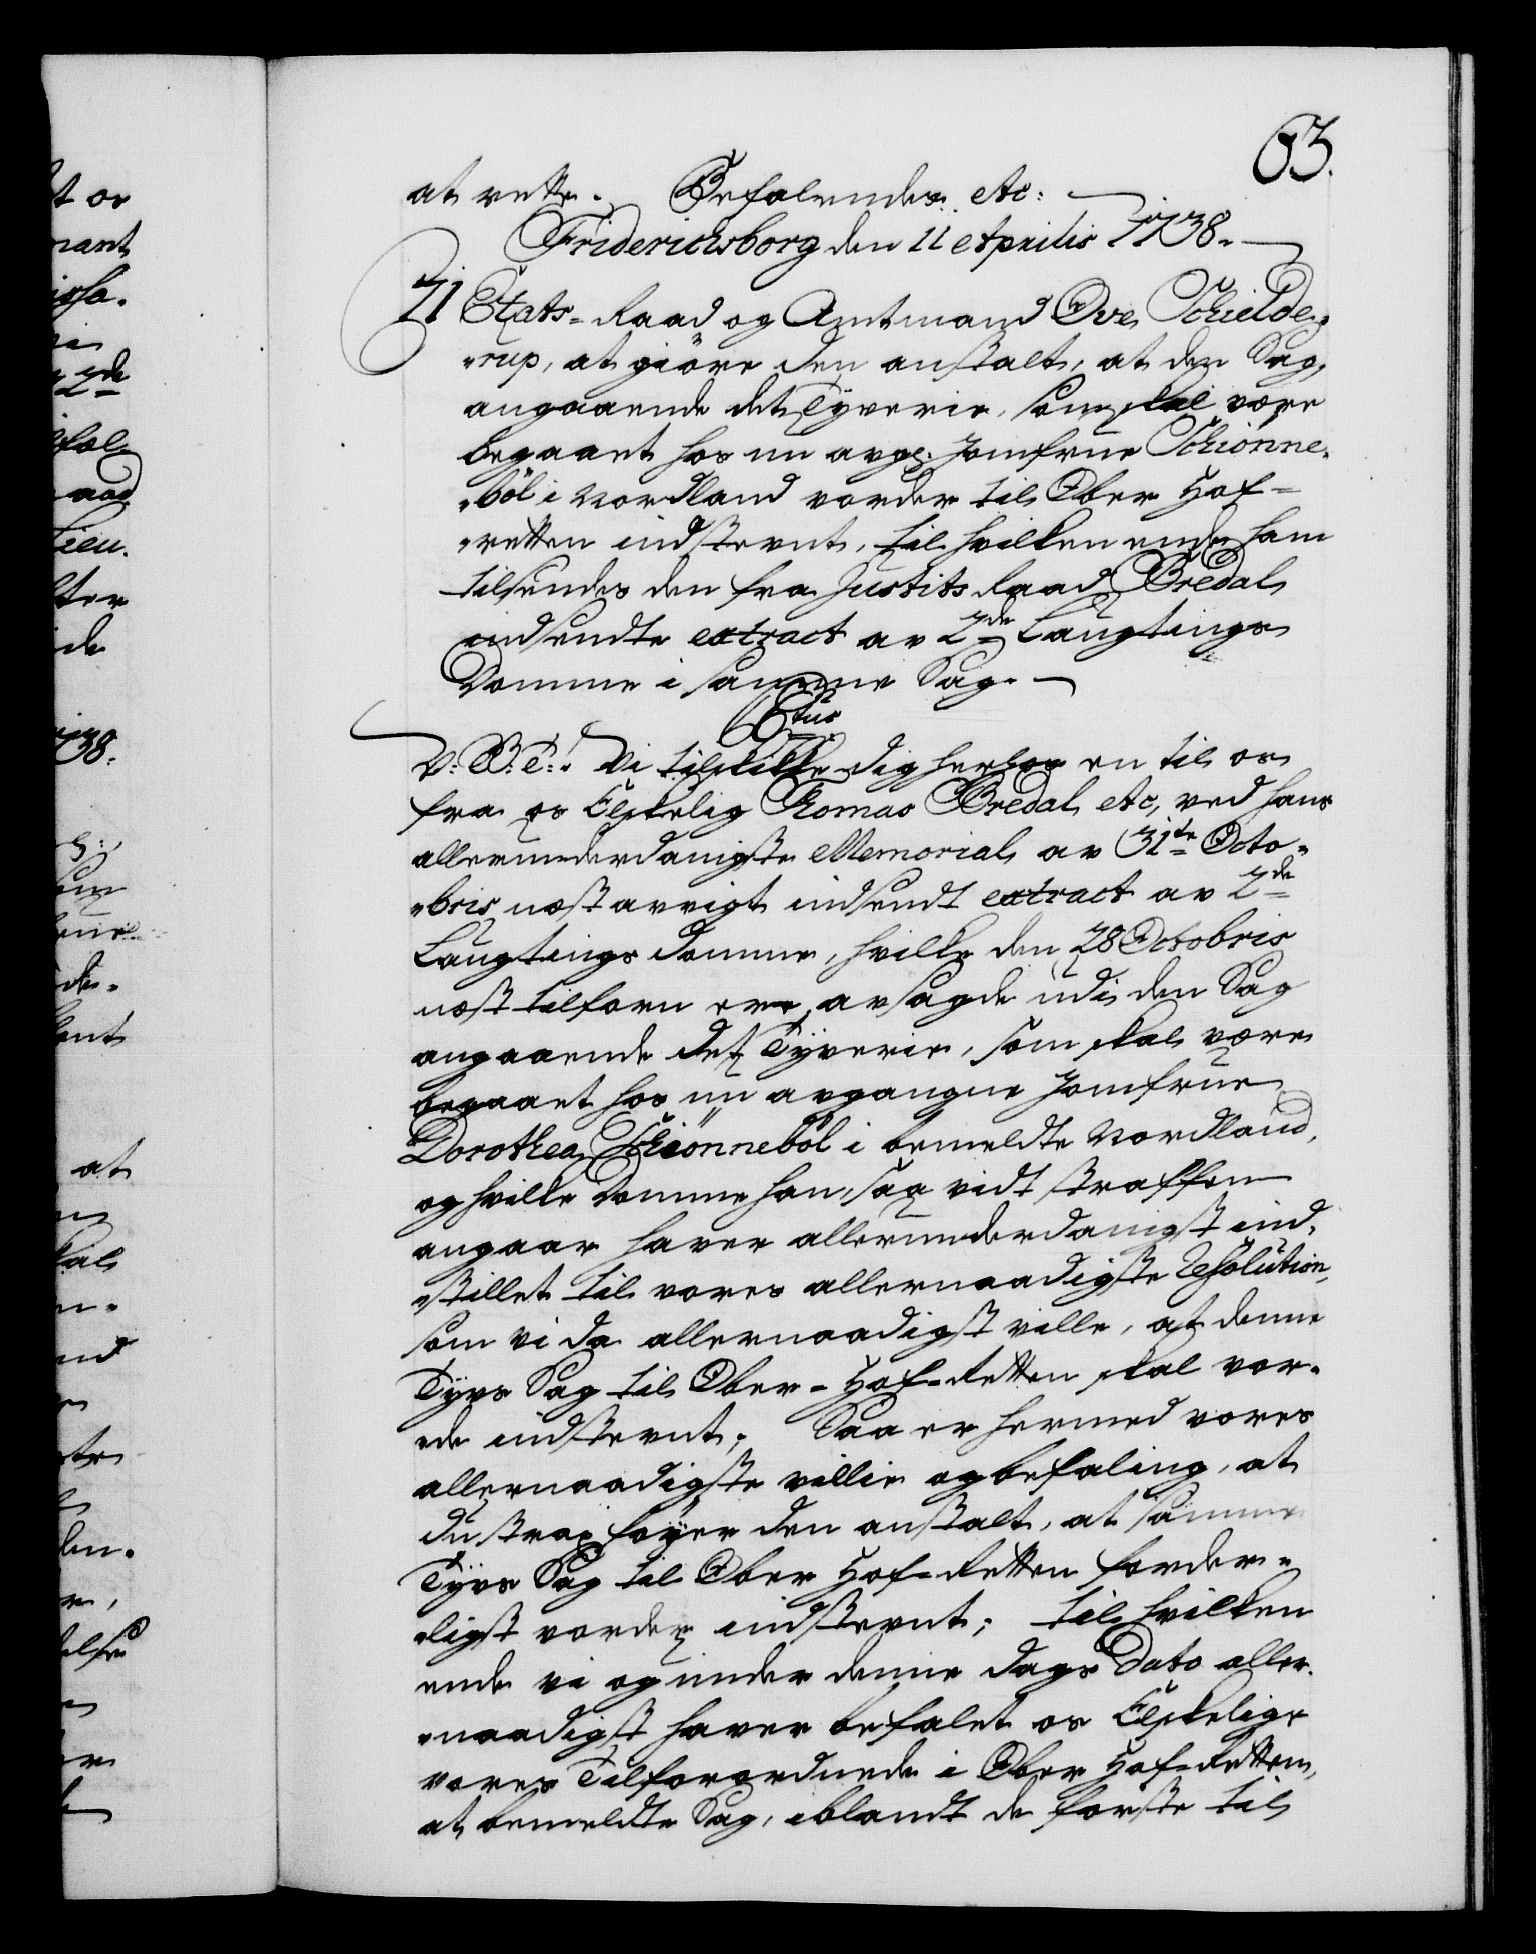 63.
at rette. Befalendes etc:
Friderichsborg den 11 Aprilis 1738.
71 Etats-Raad og Amtmand Ove Schielde-
-rup, at giöre den anstalt, at den Sag,
angaaende det Tyverie, som skal være
begaaet hos nu avg: Jomfrue Schiönne-
-böl i Nordland vorder til Ober Hof-
-retten indstevnt, til hvilken ende ham
tilsendes den fra Justits Raad Bredal
indsendte extract av 2de Laugtings
Domme i samme Sag.
C6tus
V: B: T:! Vi tilskikke dig herhos en til os
fra os Elskelig Thomas Bredal etc, ved hans
allerunderdanigste Memorial av 31te Octo-
-bris næst avvigt indsendt extract av 2de
Laugtings Domme, hvilke den 28 Octobris
næst tilforn ere avsagde udi den Sag
angaaende det Tyverie, som skal være
begaaet hos nu avgangne Jomfrue
Dorothea Schiönneböl i bemeldte Nordland,
og hvilke Domme han, saa vidt straffen
angaar haver allerunderdanigst ind-
-stillet til vores allernaadigste Resolution,
som vi da allernaadigst ville, at denne
Tyvs Sag til Ober-Hof-Retten skal vor-
-de indstevnt; Saa er hermed vores
allernaadigste villie og befaling, at
du strax föyer den anstalt, at samme
Tyvs Sag til Ober Hof-Retten forder-
-ligst vorder indstevnt; til hvilken
ende vi og under denne dags Dato aller-
-naadigst haver befalet os Elskelige
vores Tilforordnede i Ober Hof-Retten,
at bemeldte Sag, iblandt de förste til